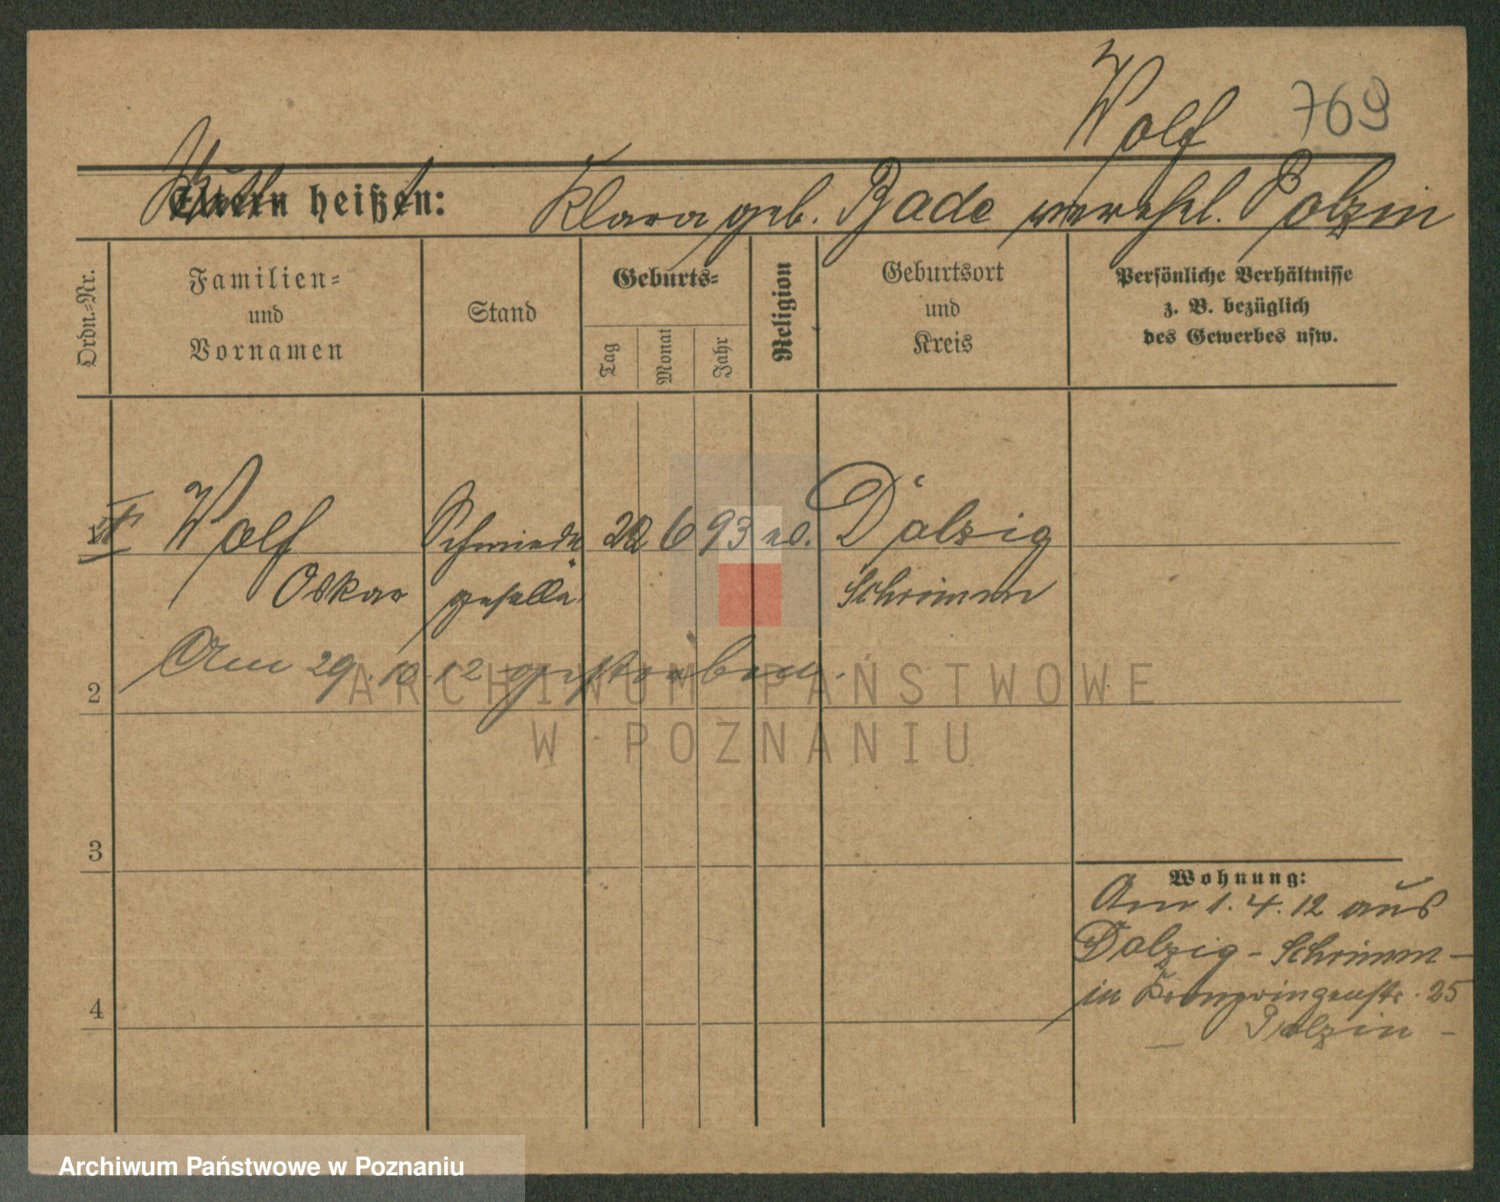 Wolf 769
Eltern heißen: Klara geb. Bade verehel. Polzin
Ordn.-Nr.
Familien-
und
Vornamen
Stand
Geburts-
Tag
Monat
Jahr
Religion
Geburtsort
und
Kreis
Persönliche Verhältnisse
z. B. bezüglich
des Gewerbes usw.
1 Wolf Schmiede 22 6 93 ev. Dolzig
Oskar geselle Schrimm
Am 29.10.12 gestorben.
2
3
4
Wohnung:
Am 1.4.12 aus
Dolzig - Schrimm -
in Kronprinzenstr. 25
— Polzin -
ARCHIWUM PAŃSTWOWE
W POZNANIU
Archiwum Państwowe w Poznaniu